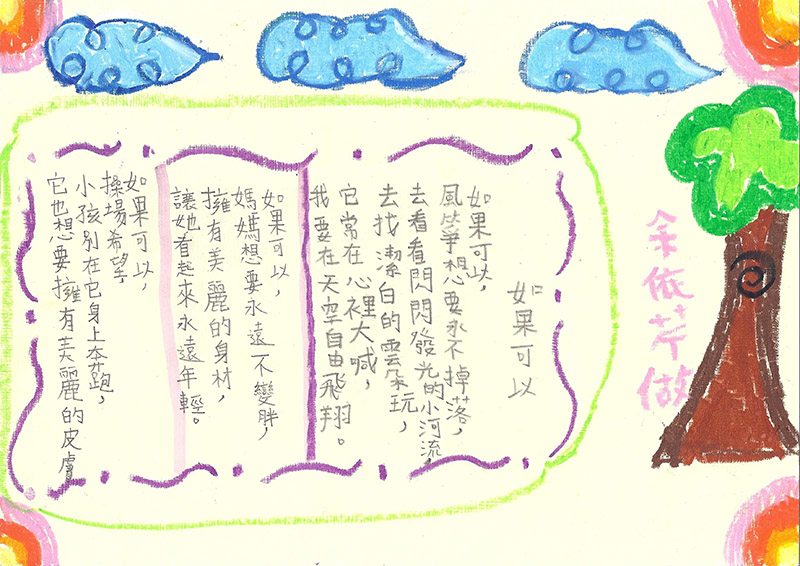 余依芹做
如果可以
如果可以,
風箏想要永不掉落,
去看看閃閃發光的小河流,
去找潔白的雲朵玩,
它常在心裡大喊,
我要在天空自由飛翔。
如果可以,
媽媽想要永遠不變胖,
擁有美麗的身材,
讓她看起來永遠年輕。
如果可以,
操場希望
小孩別在它身上奔跑,
它也想要擁有美麗的皮膚